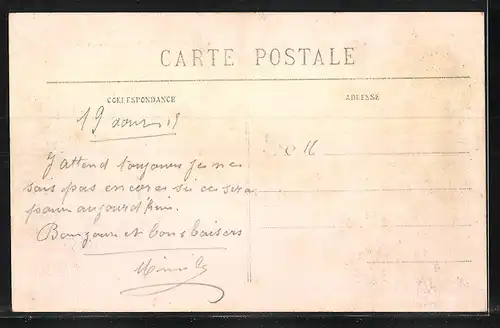 CARTE POSTALE
CORRESPONDANCE
ADRESSE
19
M
J'attend toujours je ne
sais pas encores si ce sera
pour aujourd'hui.
Bonjour et bons baisers